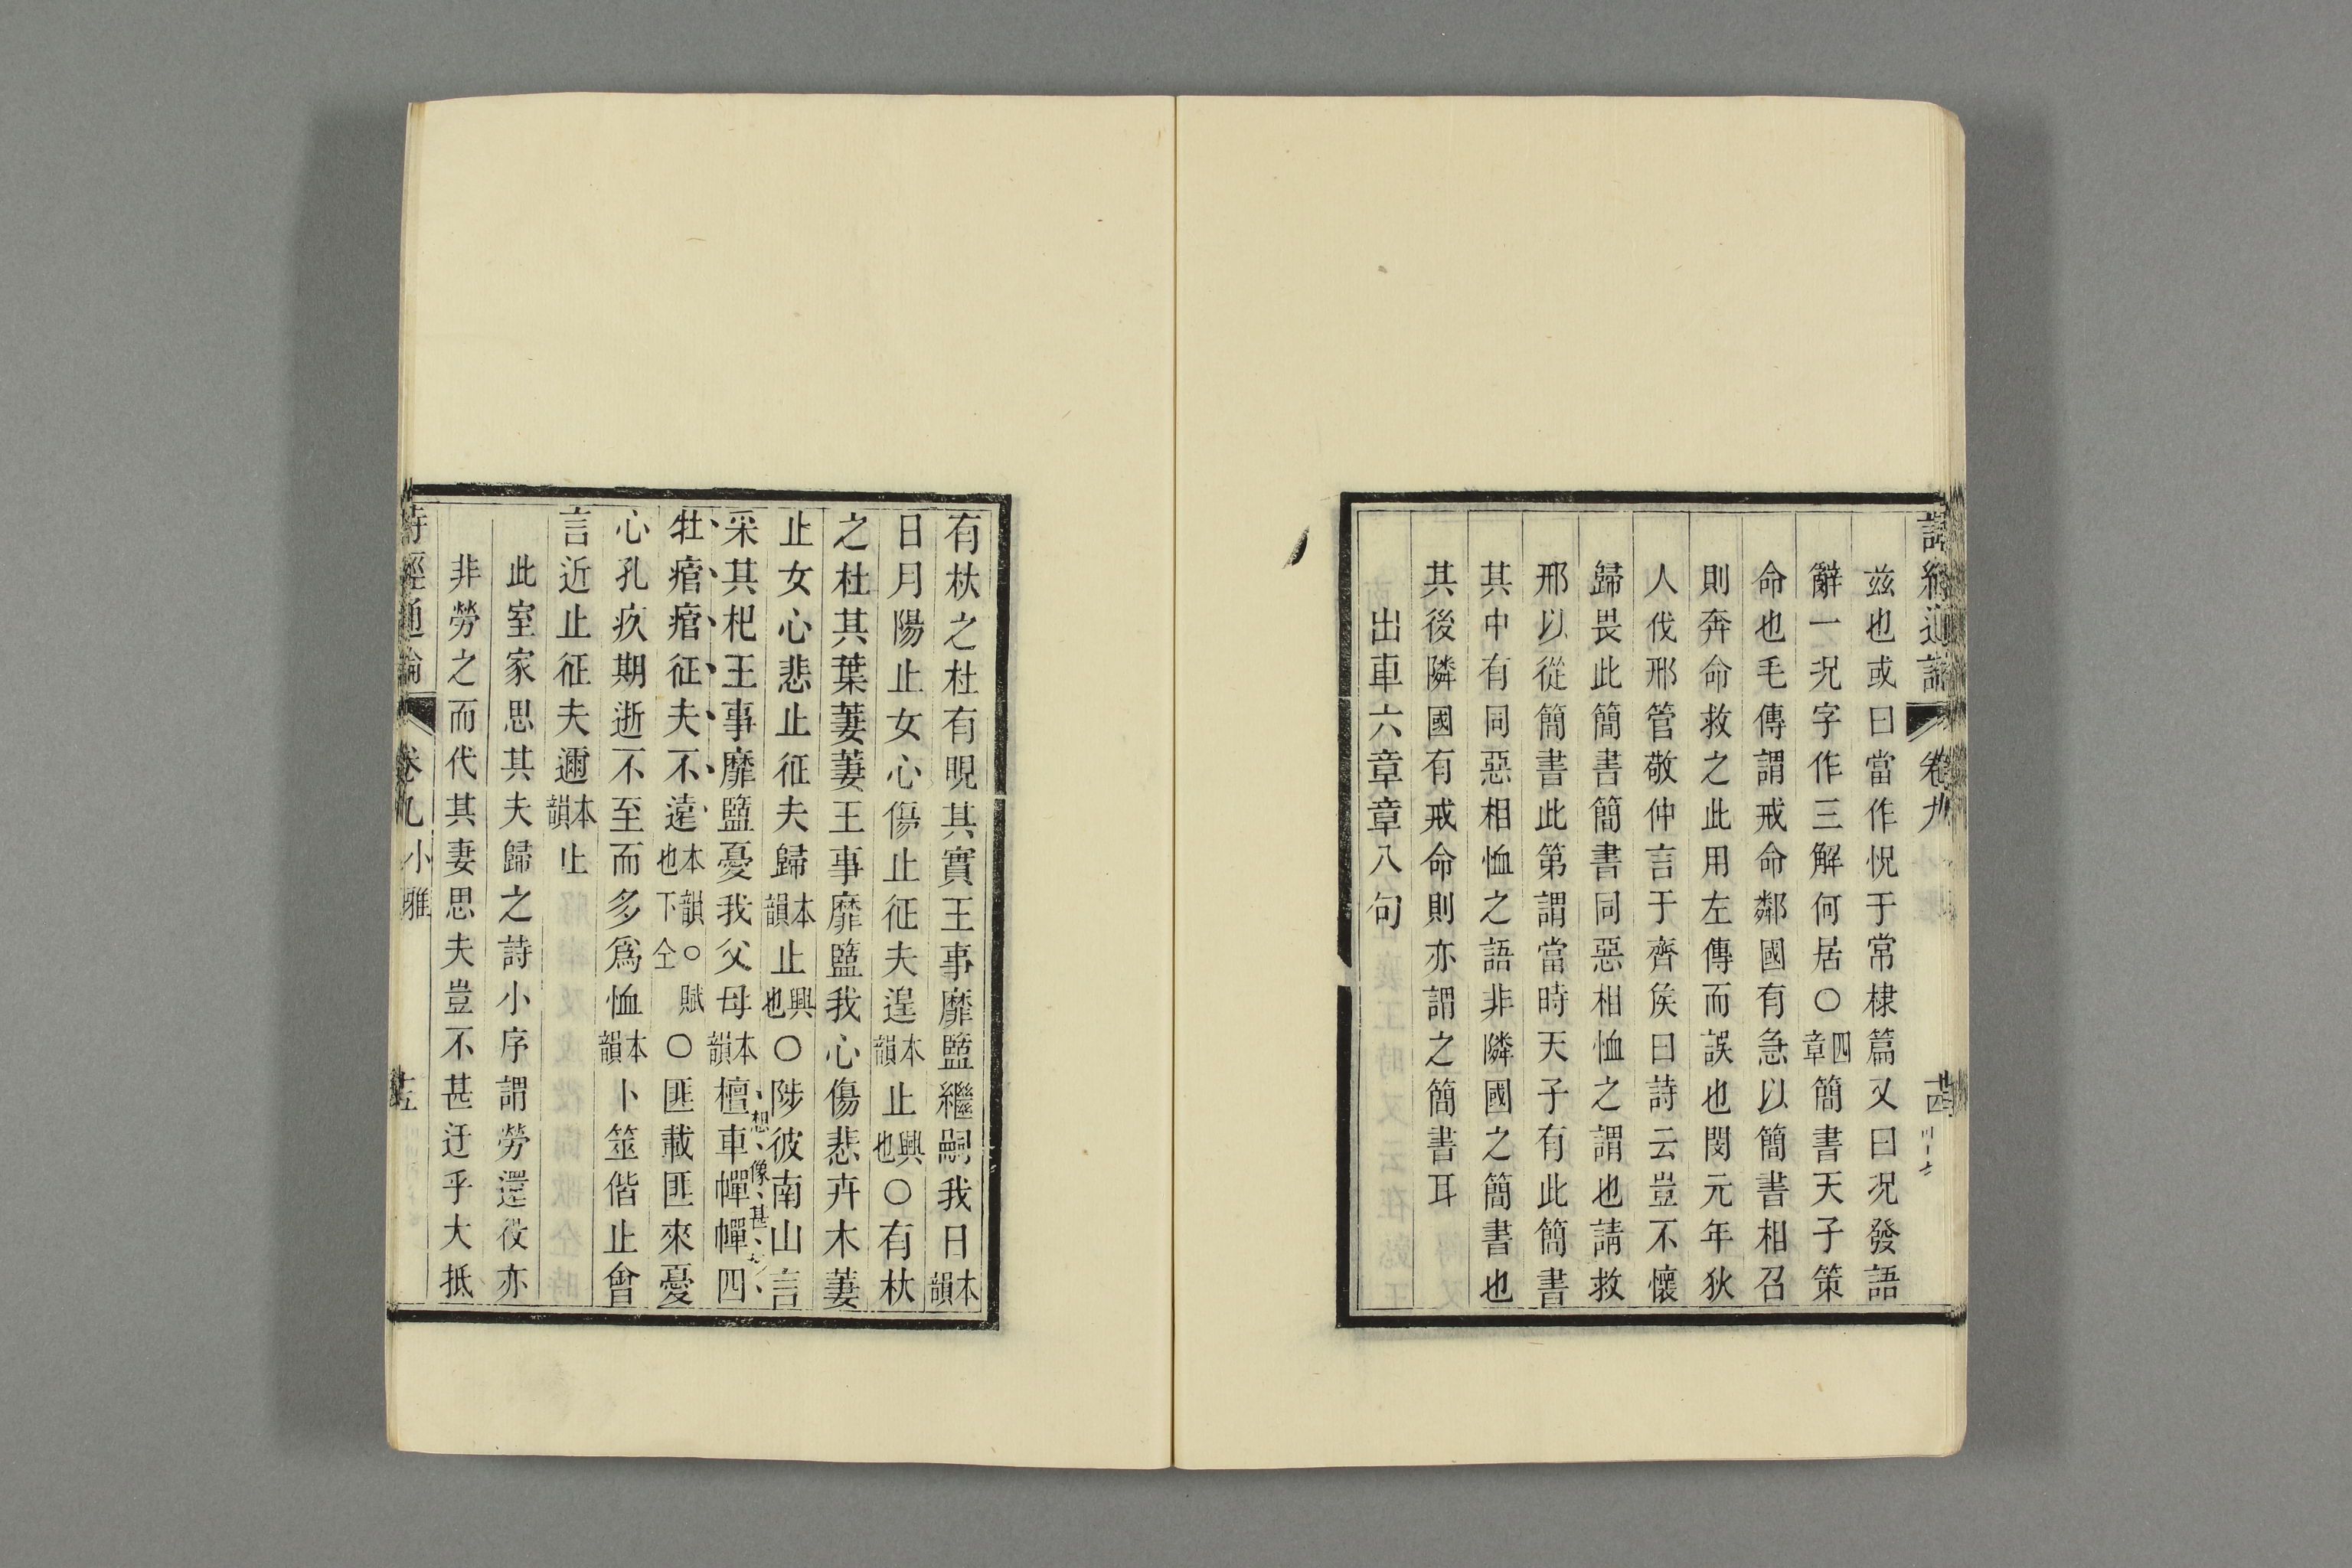 詩經通論 卷九 廿四
茲也或曰當作怳于常棣篇又曰況發語
辭一況字作三解何居〇四章簡書天子策
命也毛傳謂戒命鄰國有急以簡書相召
則奔命救之此用左傳而誤也閔元年狄
人伐邢管敬仲言于齊矦曰詩云豈不懷
歸畏此簡書簡書同惡相恤之謂也請救
邢以從簡書此第謂當時天子有此簡書
其中有同惡相恤之語非隣國之簡書也
其後隣國有戒命則亦謂之簡書耳
出車六章章八句
有杕之杜有睍其實王事靡盬繼嗣我日本韻
日月陽止女心傷止征夫遑本韻止興也〇有杕
之杜其葉萋萋王事靡盬我心傷悲卉木萋
止女心悲止征夫歸本韻止興也〇陟彼南山言
想像甚
采其杞王事靡盬憂我父母本韻檀車幝幝四
牡痯痯征夫不遠本韻〇賦也下仝〇匪載匪來憂
心孔疚期逝不至而多爲恤本韻卜筮偕止會
言近止征夫邇本韻止
此室家思其夫歸之詩小序謂勞還役亦
非勞之而代其妻思夫豈不甚迂乎大抵
詩經通論 卷九 小雅 廿五